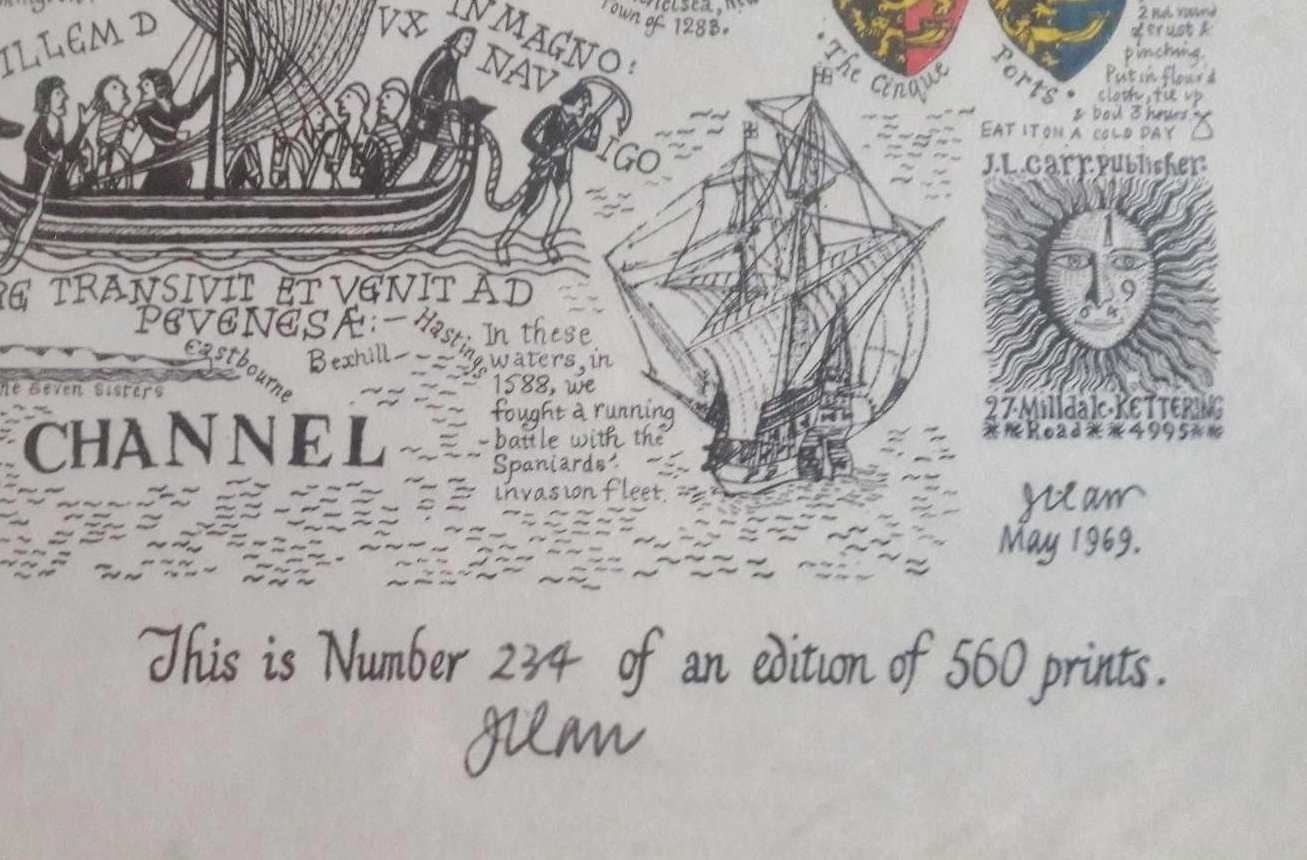 ILLEM D
VX
IN MAGNO:
NAV
IGO
Town of 1283.
• The Cinque
Ports •
2nd round
of crust &
pinching.
Put in flour'd
cloth, tie up
& boil 3 hours
EAT IT ON A COLD DAY
J.L.Carr.Publisher:
1 9 6 9
27·Milldale·KETTERING
**Road**4995**
RE TRANSIVIT ET VENIT AD
PEVENESÆ:-
Hastings
Eastbourne
Bexhill
The Seven Sisters
CHANNEL
In these
waters, in
1588, we
fought a running
battle with the
Spaniards'
invasion fleet.
JLCarr
May 1969.
This is Number 234 of an edition of 560 prints.
JLCarr